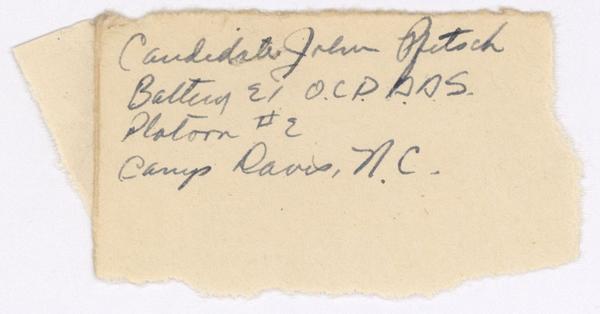 Candidate John Pfitsch
Battery E, O.C.D. A.A.S.
Platoon #2
Camp Davis, N.C.